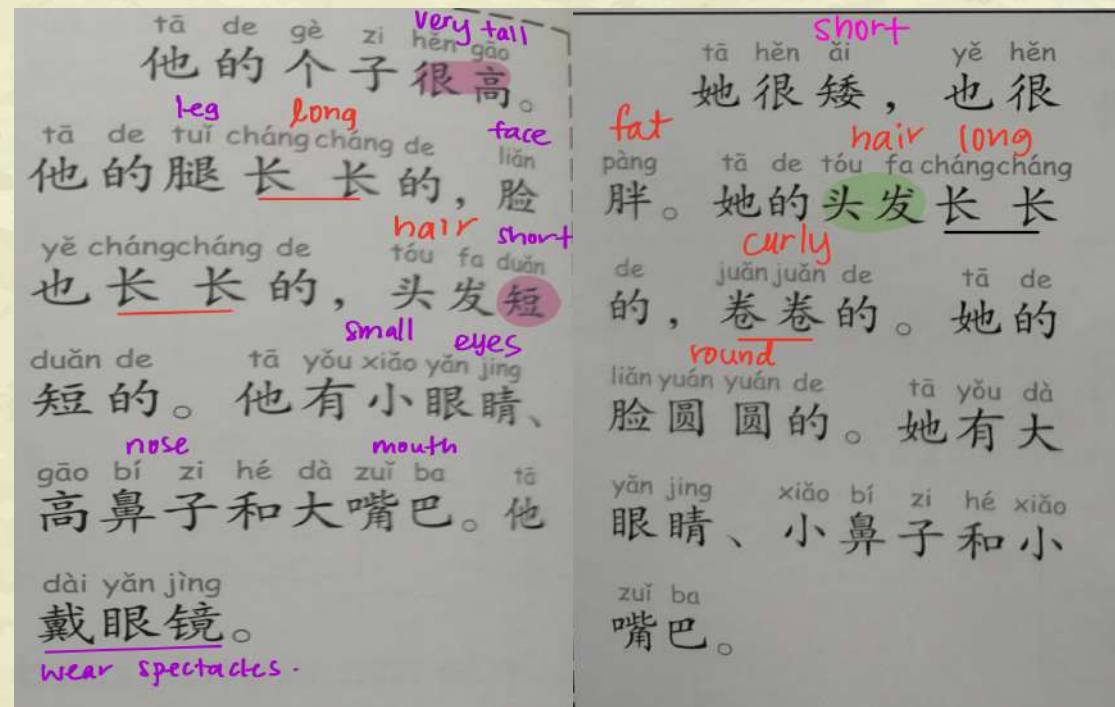 very tall
tā de gè zi hěn gāo
他的个子很高。
leg long face
tā de tuǐ cháng cháng de liǎn
他的腿长长的，脸
hair short
yě chángcháng de tóu fa duǎn
也长长的，头发短
small eyes
duǎn de tā yǒu xiǎo yǎn jing
短的。他有小眼睛、
nose mouth
gāo bí zi hé dà zuǐ ba tā
高鼻子和大嘴巴。他
dài yǎn jìng
戴眼镜。
wear spectacles.
short
tā hěn ǎi yě hěn
她很矮，也很
fat hair long
pàng tā de tóu fa chángcháng
胖。她的头发长长
curly
de juǎn juǎn de tā de
的，卷卷的。她的
round
liǎn yuán yuán de tā yǒu dà
脸圆圆的。她有大
yǎn jing xiǎo bí zi hé xiǎo
眼睛、小鼻子和小
zuǐ ba
嘴巴。